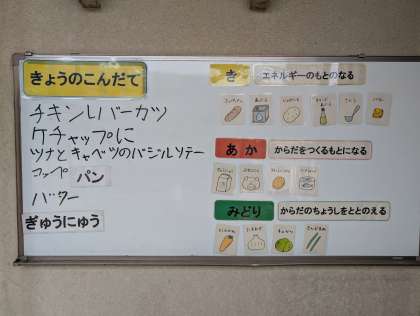 きょうのこんだて
チキンレバーカツ
ケチャップに
ツナとキャベツのバジルソテー
コッペパン
バター
ぎゅうにゅう
き エネルギーのもとのなる
あか からだをつくるもとになる
みどり からだのちょうしをととのえる